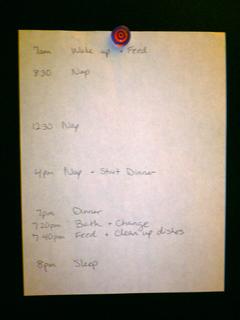 7am Wake up + Feed
8:30 Nap
12:30 Nap
4pm Nap + Start Dinner
7pm Dinner
7:20pm Bath + Change
7:40pm Feed + Clean up dishes
8pm Sleep